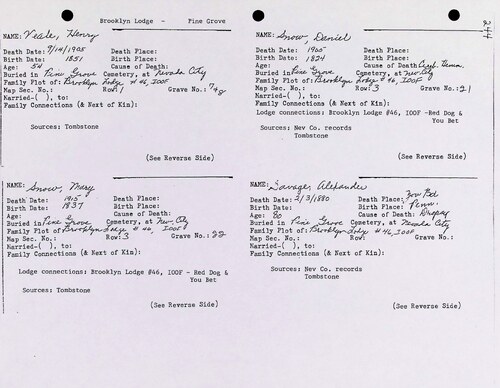 Brooklyn Lodge - Pine Grove
NAME: Veale, Henry
Death Date: 9/14/1905 Death Place:
Birth Date: 1851 Birth Place:
Age: 54 Cause of Death:
Buried in Pine Grove Cemetery, at Nevada City
Family Plot of: Brooklyn Lodge #46, IOOF
Map Sec. No.: Row: 1 Grave No.: 7+8
Married-( ), to:
Family Connections (& Next of Kin):
Sources: Tombstone
(See Reverse Side)
NAME: Snow, Daniel
Death Date: 1905 Death Place:
Birth Date: 1824 Birth Place:
Age: Cause of Death:
Buried in Pine Grove Cemetery, at Nev. City
Family Plot of: Brooklyn Lodge #46, IOOF
Map Sec. No.: Row: 3 Grave No.: 21
Married-( ), to:
Family Connections (& Next of Kin):
Lodge connections: Brooklyn Lodge #46, IOOF -Red Dog &
You Bet
Sources: Nev Co. records
Tombstone
(See Reverse Side)
NAME: Snow, Mary
Death Date: 1915 Death Place:
Birth Date: 1837 Birth Place:
Age: Cause of Death:
Buried in Pine Grove Cemetery, at Nev. City
Family Plot of: Brooklyn Lodge #46, IOOF
Map Sec. No.: Row: 3 Grave No.: 22
Married-( ), to:
Family Connections (& Next of Kin):
Lodge connections: Brooklyn Lodge #46, IOOF - Red Dog &
You Bet
Sources: Tombstone
(See Reverse Side)
NAME: Savage, Alexander
Death Date: 2/3/1880 Death Place: You Bet
Birth Date: Birth Place: Penn.
Age: 80 Cause of Death: Dropsy
Buried in Pine Grove Cemetery, at Nevada City
Family Plot of: Brooklyn Lodge #46, IOOF
Map Sec. No.: Row: Grave No.:
Married-( ), to:
Family Connections (& Next of Kin):
Sources: Nev Co. records
Tombstone
(See Reverse Side)